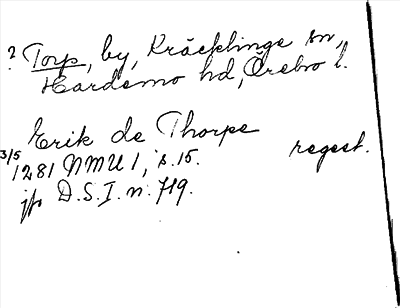 ? Torp, by, Kräcklinge sn,
Hardemo hd, Örebro l.
Erik de Thorpe
3/5 1281 NMU 1, s. 15. regest.
jfr D.S. I. n. 719.